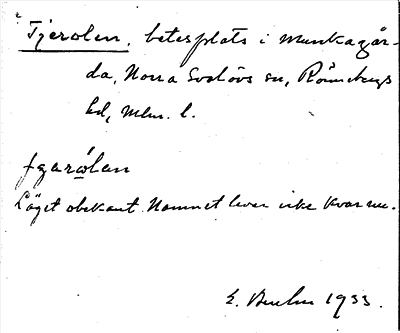 Tjerolen, betesplats i Munkagår-
da, Norra Svalövs sn, Rönnebergs
hd, Mlm. l.
Läget obekant. Namnet lever icke kvar nu.
E. 1933.